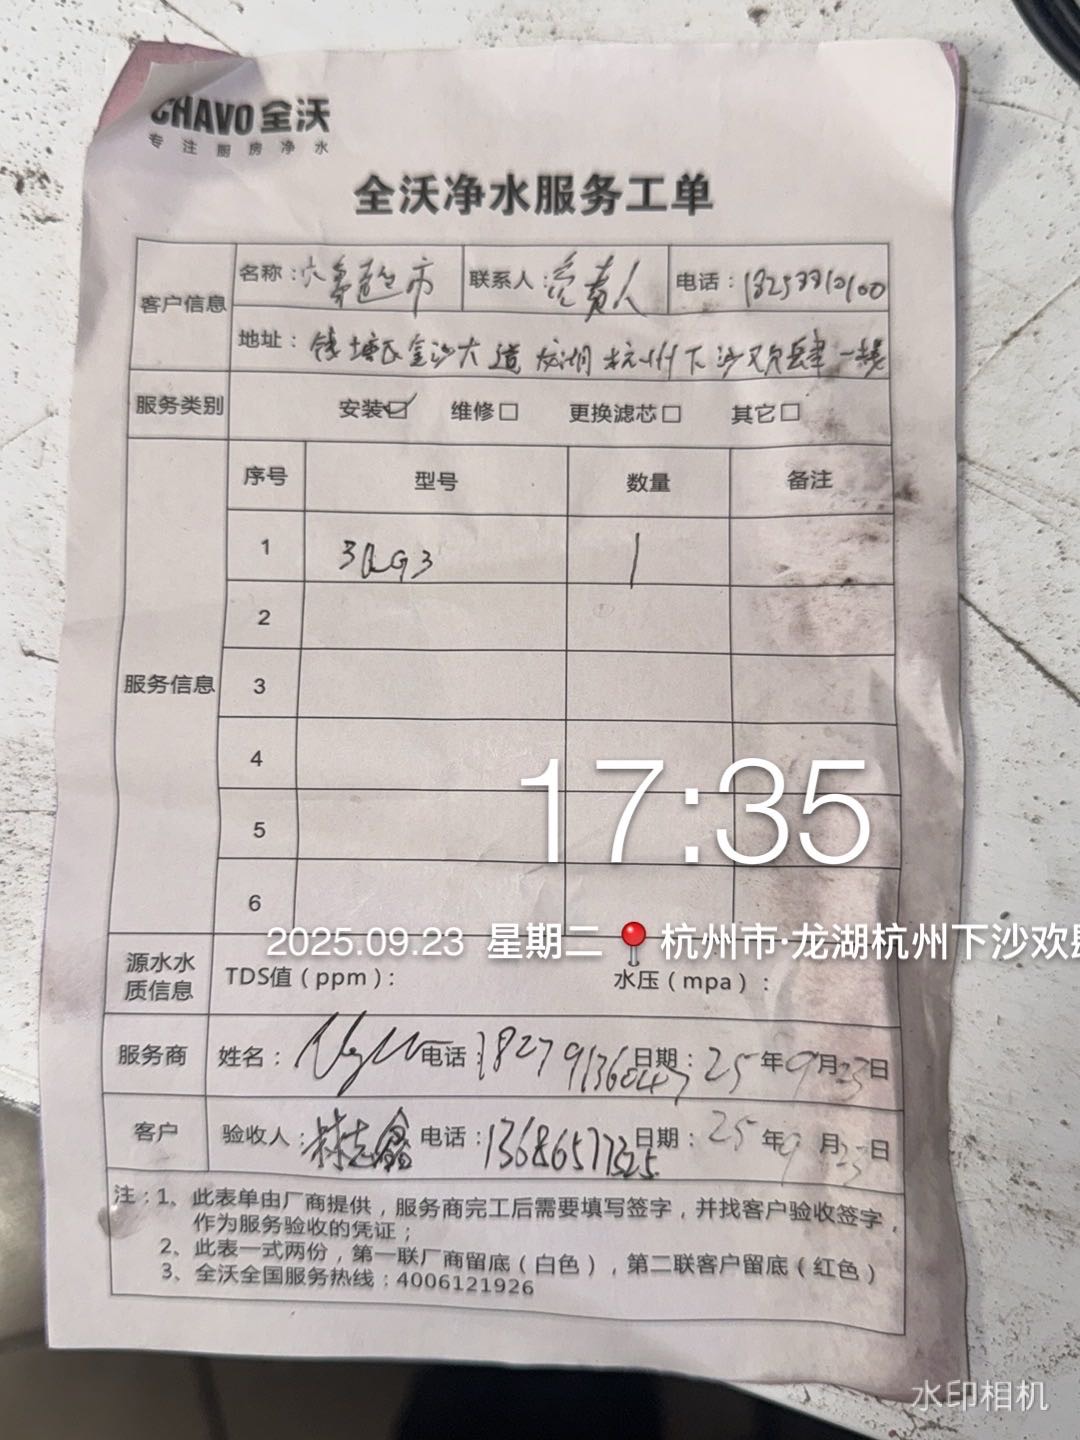 CHAVO 全沃
专注厨房净水
全沃净水服务工单
客户信息 名称： 超市 联系人： 负责人 电话：
地址：钱塘区金沙大道龙湖杭州下沙欢肆一楼
服务类别 安装☑ 维修□ 更换滤芯□ 其它□
服务信息 序号 型号 数量 备注
1 3RG3 1
2
3
4
5
6
17:35
2025.09.23 星期二 杭州市·龙湖杭州下沙欢肆
源水水质信息 TDS值（ppm）： 水压（mpa）：
服务商 姓名： 电话：18279136047 日期：25年9月23日
客户 验收人：林志鑫 电话：13686577325 日期：25年9月23日
注：1、此表单由厂商提供，服务商完工后需要填写签字，并找客户验收签字，
作为服务验收的凭证；
2、此表一式两份，第一联厂商留底（白色），第二联客户留底（红色）
3、全沃全国服务热线：4006121926
水印相机